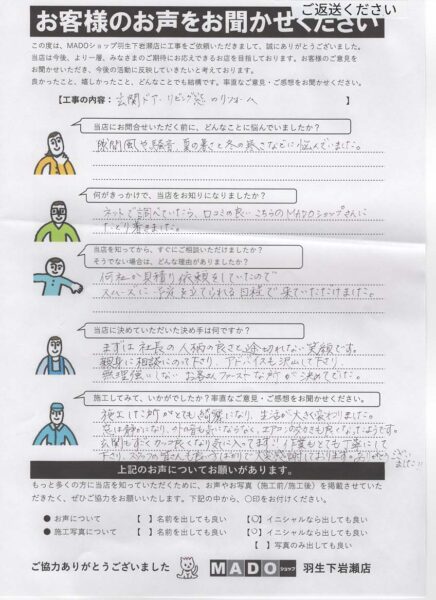 ご返送ください
お客様のお声をお聞かせください
この度は、MADOショップ羽生下岩瀬店に工事をご依頼いただきまして、誠にありがとうございました。
当店は今後、より一層、みなさまのご期待にお応えできるお店を目指しております。お客様のご意見を
お聞かせいただき、今後の活動に反映していきたいと考えております。
良かったこと、嬉しかったこと、どんなことでも結構です。率直なご意見・ご感想をお聞かせください。
【工事の内容： 玄関ドア・リビング窓のリフォーム 】
当店にお問合せいただく前に、どんなことに悩んでいましたか？
隙間風や騒音、夏の暑さと冬の寒さなどに悩んでいました。
何がきっかけで、当店をお知りになりましたか？
ネットで調べていたら、口コミの良いこちらのMADOショップさんに
たどり着きました。
当店を知ってから、すぐにご相談いただけましたか？
そうでない場合は、どんな理由がありましたか？
何社か見積り依頼をしていたので
スムーズに予定を立てられる日程で来ていただけました。
当店に決めていただいた決め手は何ですか？
まずは社長の人柄の良さと途切れない笑顔です。
親身に相談にのって下さり、アドバイスも沢山して下さり
無理強いしないお客さんファーストな所が決めてでした。
施工してみて、いかがでしたか？率直なご意見・ご感想をお聞かせください。
施工した所がとても綺麗になり、生活が大きく変わりました。
窓は静かになり、外の音も気にならなく、エアコンの効きも良くなったようです。
玄関もすごくカッコ良くなり気に入ってます。作業もとても丁寧にして
下さり、スタッフの皆さんも良い方ばかりで大変感謝しております。ありがとうござい
ました!!
上記のお声についてお願いがあります。
もっと多くの方に当店を知っていただくために、お声やお写真（施工前/施工後）を掲載させていた
だきたく、ぜひご協力をお願いいたします。下記の中から、○印をお付けください。
● お声について 【 】名前を出しても良い 【○】イニシャルなら出しても良い
● 施工写真について 【 】名前を出しても良い 【○】イニシャルなら出しても良い
【 】写真のみ出しても良い
ご協力ありがとうございました MADOショップ 羽生下岩瀬店